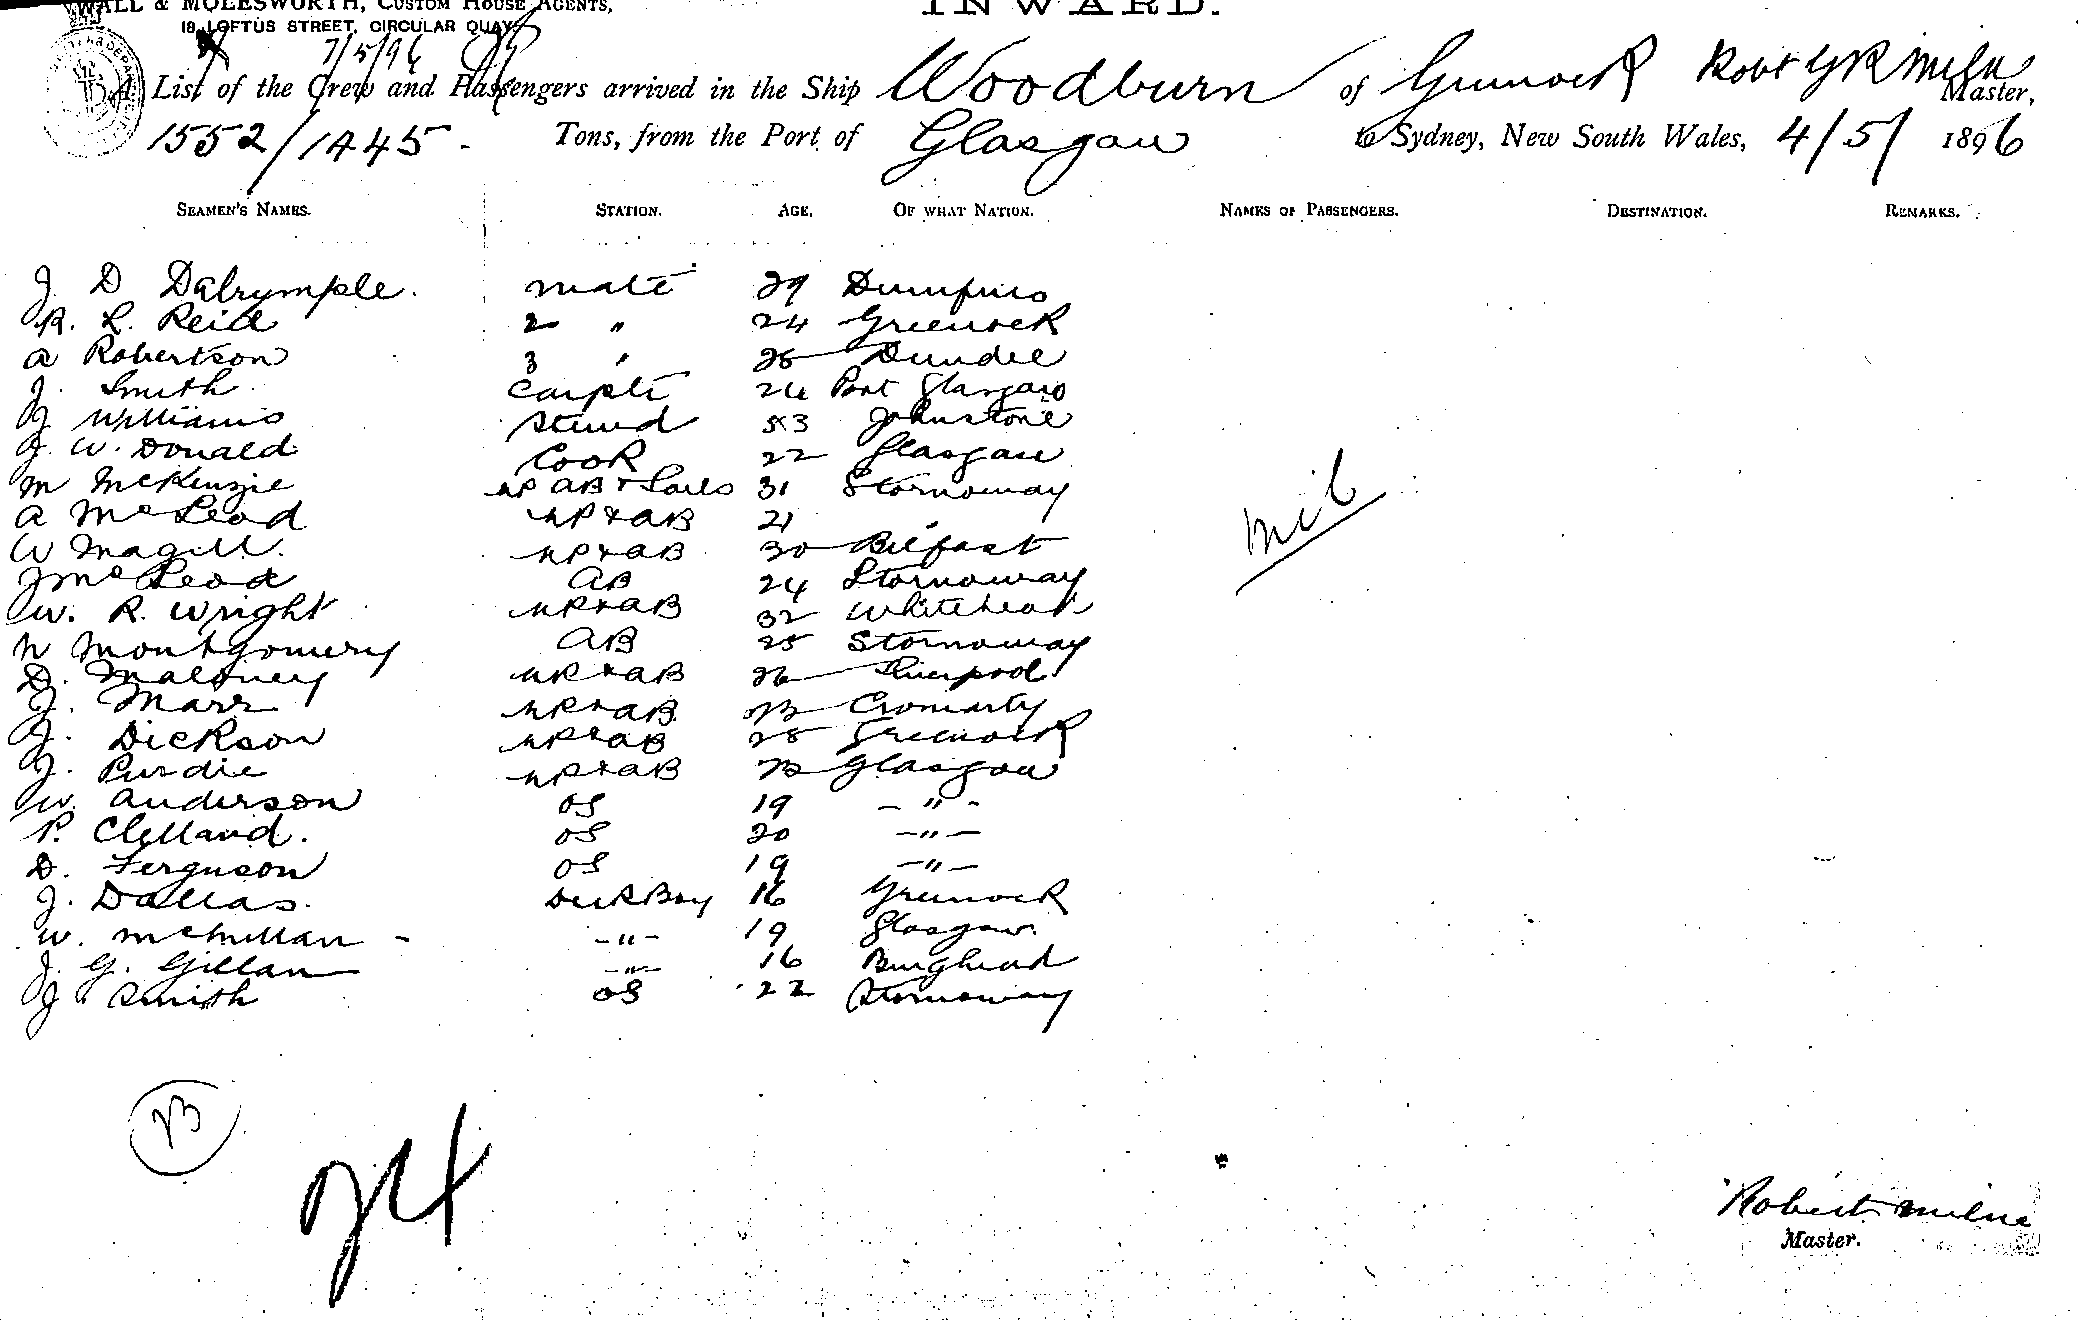 WALL & MOLESWORTH, CUSTOM HOUSE AGENTS,
18, LOFTUS STREET, CIRCULAR QUAY.
INWARD.
7/5/96
A List of the Crew and Passengers arrived in the Ship Woodburn of Greenock Robt Milne Master,
1552/1445 - Tons, from the Port of Glasgow to Sydney, New South Wales, 4/5/1896
SEAMEN'S NAMES. STATION. AGE. OF WHAT NATION. NAMES OF PASSENGERS. DESTINATION. REMARKS.
J D Dalrymple. mate 29 Dumfries
R. L. Reid 2 " 24 Greenock
A Robertson 3 " Dundee
J. Smith Carptr Port Glasgow
J Williams Stewd 53 Johnstone
J. W. Donald Cook 22 Glasgow
M McKenzie AB & Sails 31 Stornoway
A McLeod & AB 21 "
W Magill. & AB 30 Belfast
J McLeod AB 24 Stornoway
W. R. Wright & AB 32 Whitehead
N Montgomery AB 25 Stornoway
D. Maloney & AB 26 Liverpool
J. Marr & AB 23 Cromarty
J. Dickson & AB 28 Greenock
J. Purdie & AB 23 Glasgow
W. Anderson OS 19 - " -
P. Clelland. OS 20 - " -
D. Ferguson OS 19 - " -
J. Dallas. Deck Boy 16 Greenock
W. McMillan - - " - 19 Glasgow.
J. G. Gillan - " - 16 Burghead
J Smith OS 22 Stornoway
nil
23
24
Robert Milne
Master.